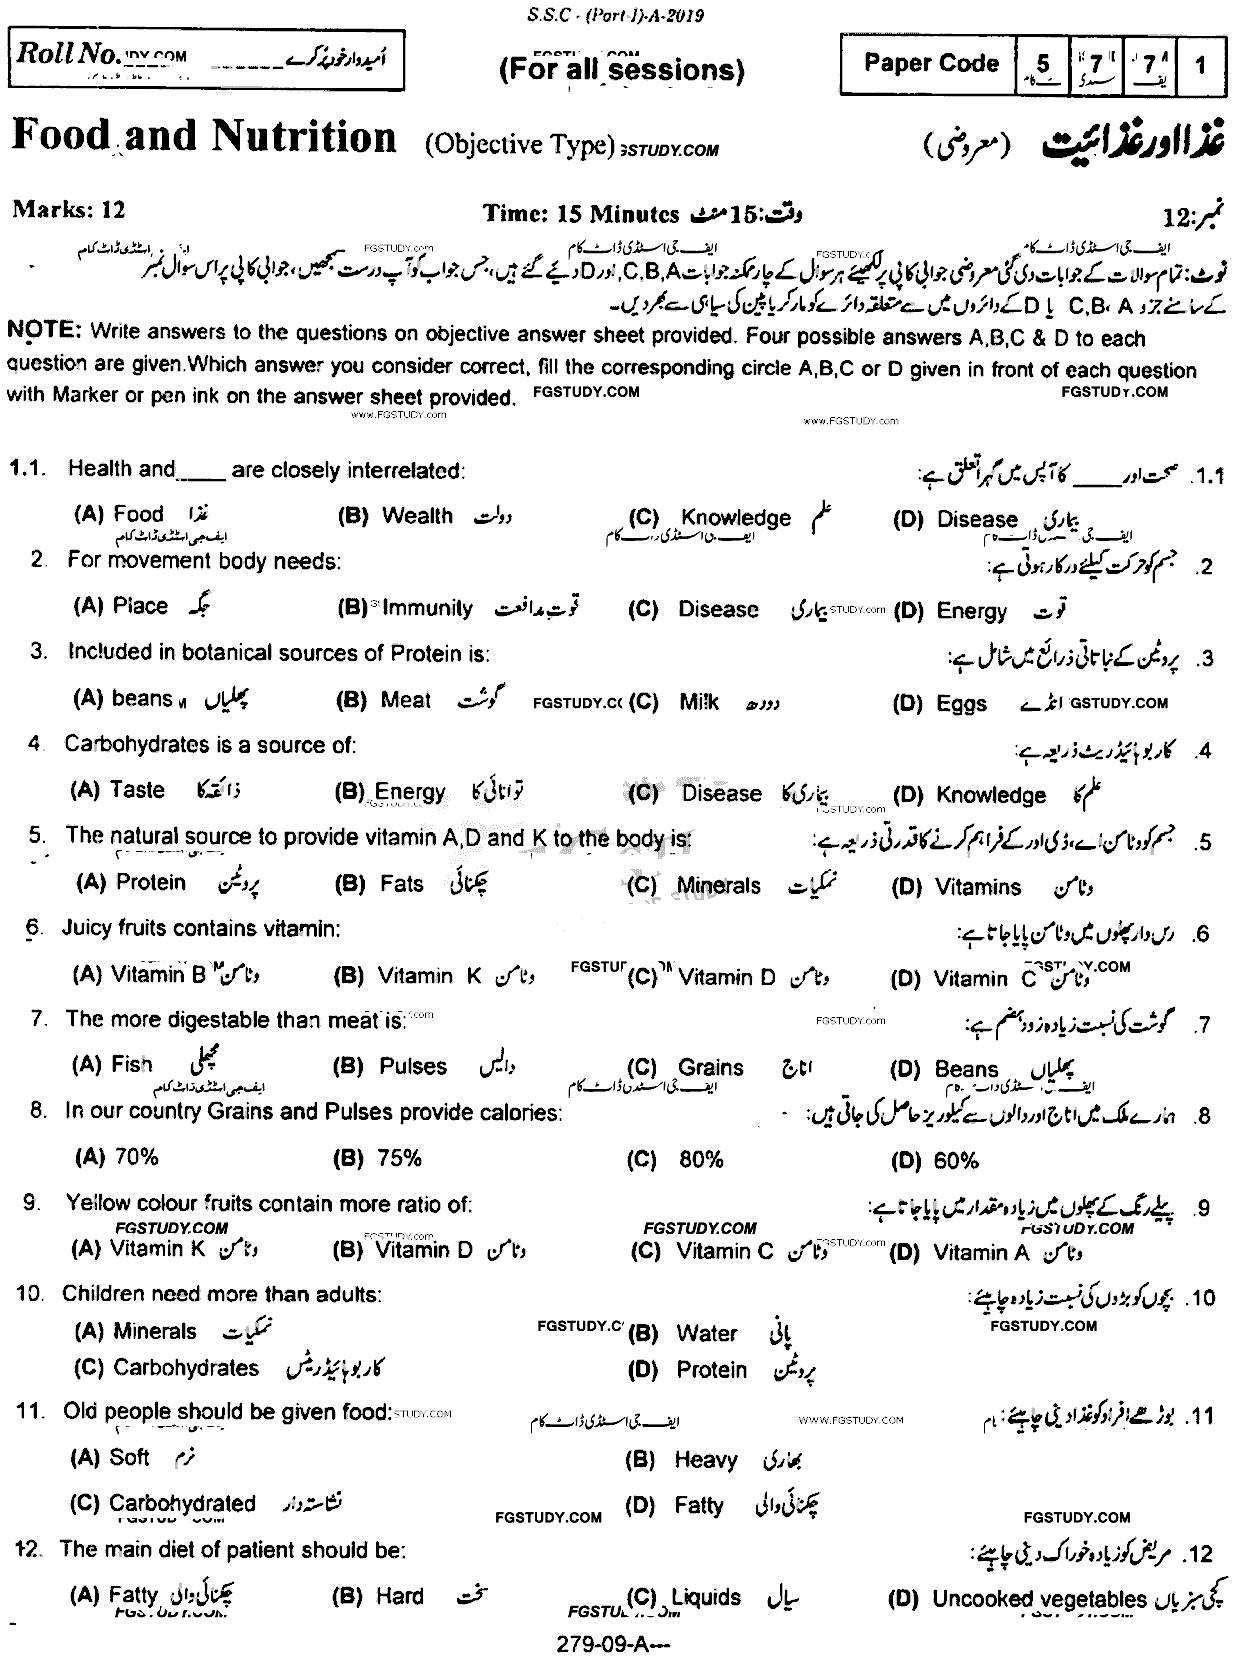 S.S.C - (Part-I)-A-2019
Roll No. امیدوار خود پُر کرے
(For all sessions)
Paper Code 5 7 7 1
Food and Nutrition (Objective Type) GSTUDY.COM غذا اور غذائیت (معروضی)
Marks: 12 Time: 15 Minutes وقت:15 منٹ نمبر:12
ایف جی اسٹڈی ڈاٹ کام FGSTUDY.com ایف جی اسٹڈی ڈاٹ کام FGSTUDY.com ایف جی اسٹڈی ڈاٹ کام
نوٹ: تمام سوالات کے جوابات دی گئی معروضی جوابی کاپی پر لکھیئے ہر سوال کے چار ممکنہ جوابات C,B,A اور D دیے گئے ہیں، جس جواب کو آپ درست سمجھیں، جوابی کاپی پر اس سوال نمبر
کے سامنے جزو C,B،A یا D کے دائروں میں سے متعلقہ دائرے کو مارکر یا پین کی سیاہی سے بھر دیں۔
NOTE: Write answers to the questions on objective answer sheet provided. Four possible answers A,B,C & D to each
question are given.Which answer you consider correct, fill the corresponding circle A,B,C or D given in front of each question
with Marker or pen ink on the answer sheet provided. FGSTUDY.COM FGSTUDY.COM
www.FGSTUDY.com www.FGSTUDY.com
1.1. Health and____ are closely interrelated: 1.1. صحت اور ____ کا آپس میں گہرا تعلق ہے:
(A) Food غذا (B) Wealth دولت (C) Knowledge علم (D) Disease بیماری
2. For movement body needs: 2. جسم کو حرکت کیلئے درکار ہوتی ہے:
(A) Place جگہ (B) Immunity قوت مدافعت (C) Disease بیماری STUDY.com (D) Energy قوت
3. Included in botanical sources of Protein is: 3. پروٹین کے نباتاتی ذرائع میں شامل ہے:
(A) beans پھلیاں (B) Meat گوشت FGSTUDY.C (C) Milk دودھ (D) Eggs انڈے GSTUDY.COM
4. Carbohydrates is a source of: 4. کاربوہائیڈریٹ ذریعہ ہے:
(A) Taste ذائقہ کا (B) Energy توانائی کا (C) Disease بیماری کا (D) Knowledge علم کا
FGSTUDY.com
5. The natural source to provide vitamin A,D and K to the body is: 5. جسم کو وٹامن اے، ڈی اور کے فراہم کرنے کا قدرتی ذریعہ ہے:
(A) Protein پروٹین (B) Fats چکنائی (C) Minerals نمکیات (D) Vitamins وٹامن
6. Juicy fruits contains vitamin: 6. رس دار پھلوں میں وٹامن پایا جاتا ہے:
(A) Vitamin B وٹامن (B) Vitamin K وٹامن (C) Vitamin D وٹامن (D) Vitamin C وٹامن
7. The more digestable than meat is: FGSTUDY.com 7. گوشت کی نسبت زیادہ زود ہضم ہے:
(A) Fish مچھلی (B) Pulses دالیں (C) Grains اناج (D) Beans پھلیاں
ایف جی اسٹڈی ڈاٹ کام ایف جی اسٹڈی ڈاٹ کام
8. In our country Grains and Pulses provide calories: 8. ہمارے ملک میں اناج اور دالوں سے کیلوریز حاصل کی جاتی ہیں:
(A) 70% (B) 75% (C) 80% (D) 60%
9. Yellow colour fruits contain more ratio of: 9. پیلے رنگ کے پھلوں میں زیادہ مقدار میں پایا جاتا ہے:
FGSTUDY.COM FGSTUDY.COM FGSTUDY.COM
(A) Vitamin K وٹامن (B) Vitamin D وٹامن (C) Vitamin C وٹامن (D) Vitamin A وٹامن
10. Children need more than adults: 10. بچوں کو بڑوں کی نسبت زیادہ چاہیئے:
(A) Minerals نمکیات FGSTUDY.C (B) Water پانی FGSTUDY.COM
(C) Carbohydrates کاربوہائیڈریٹس (D) Protein پروٹین
11. Old people should be given food: STUDY.COM ایف جی اسٹڈی ڈاٹ کام WWW.FGSTUDY.COM 11. بوڑھے افراد کو غذا دینی چاہیئے:
(A) Soft نرم (B) Heavy بھاری
(C) Carbohydrated نشاستہ دار (D) Fatty چکنائی والی
FGSTUDY.COM FGSTUDY.COM
12. The main diet of patient should be: 12. مریض کو زیادہ خوراک دینی چاہیئے:
(A) Fatty چکنائی والی (B) Hard سخت (C) Liquids سیال (D) Uncooked vegetables کچی سبزیاں
279-09-A---